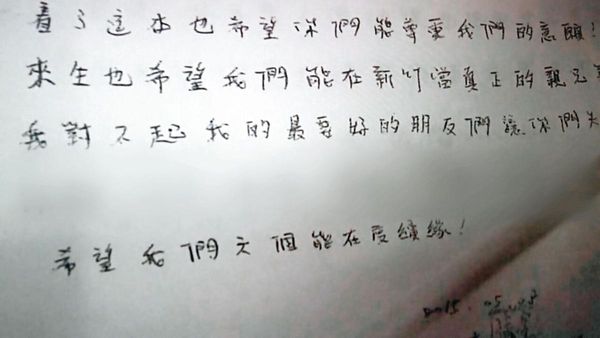 看了這本也希望你們能尊重我們的意願!
來生也希望我們能在新竹當真正的親兄
我對不起我的最要好的朋友們讓你們失
希望我們六個能在度續緣!
2015.05